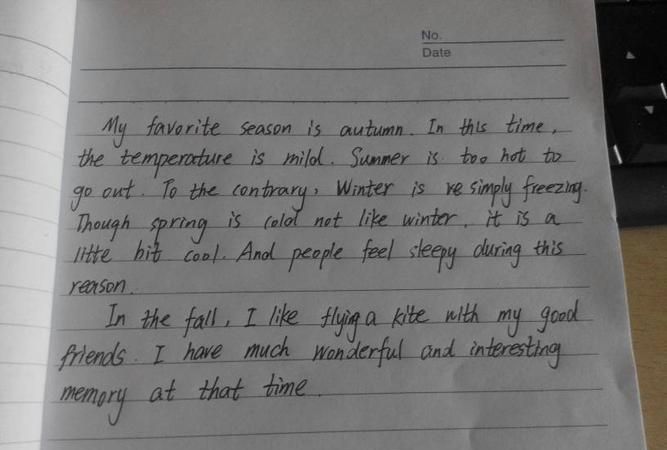 No.
Date
My favorite season is autumn. In this time,
the temperature is mild. Summer is too hot to
go out. To the contrary, Winter is re simply freezing.
Though spring is cold not like winter, it is a
litte bit cool. And people feel sleepy during this
reason.
In the fall, I like flying a kite with my good
friends. I have much wonderful and interesting
memory at that time.